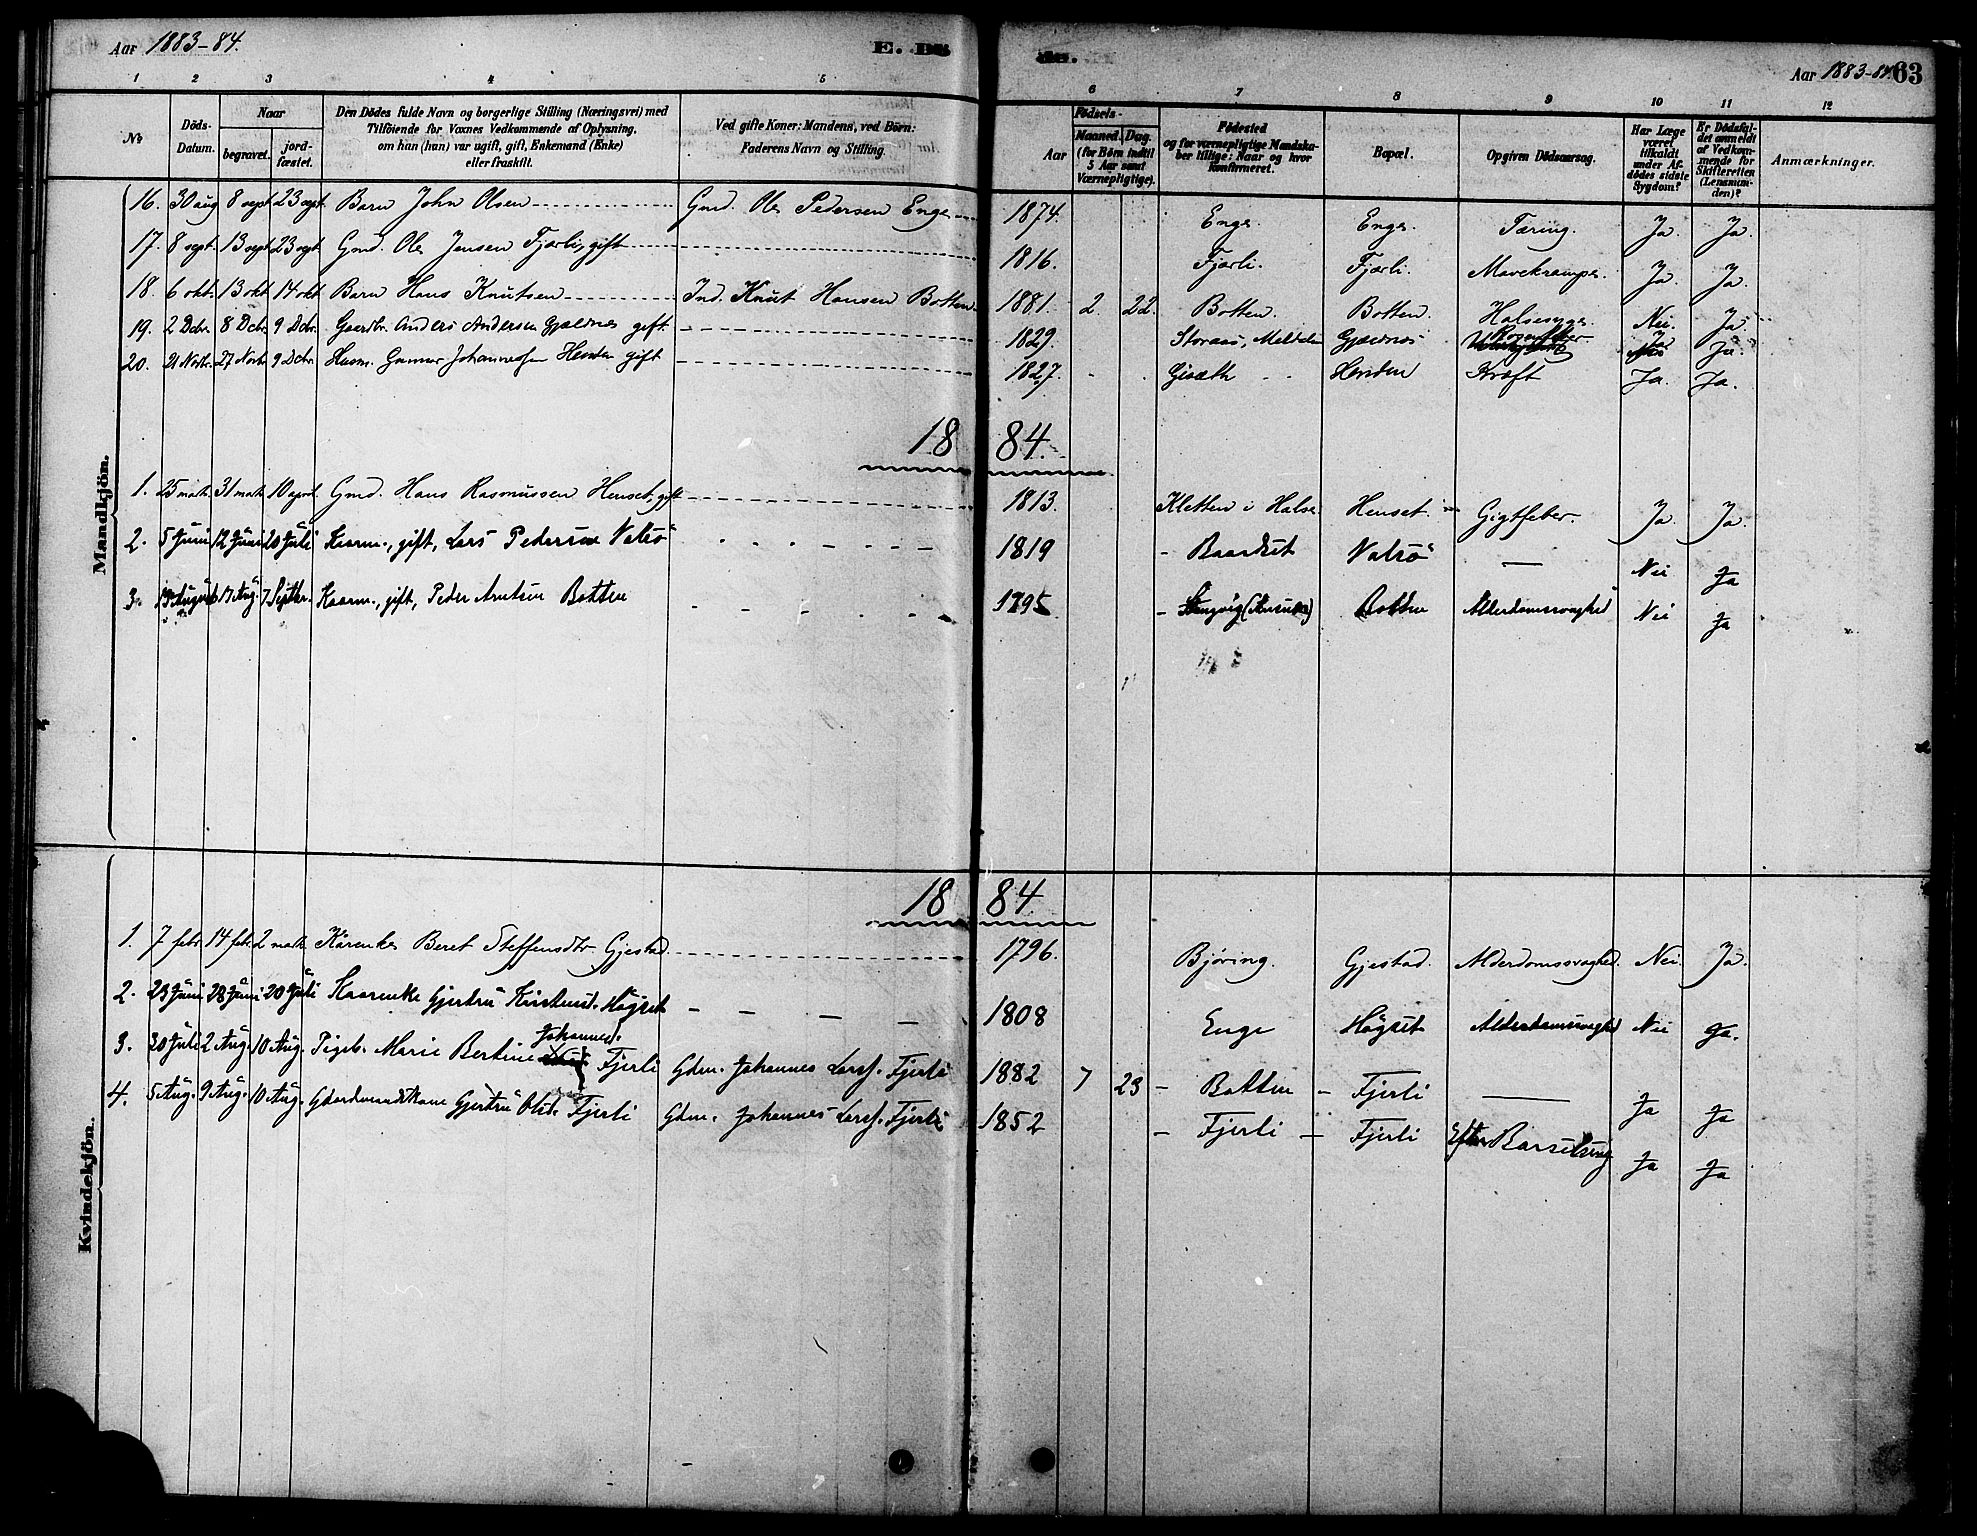 Aar 1883-84.
E. De
døde.
Aar 1883-84. 63
1 2 3 4 5 6 7 8 9 10 11 12
No
Döds-Datum.
Naar
begravet. jordfæstet.
Den Dödes fulde Navn og borgerlige Stilling (Næringsvei) med
Tilföiende for Voxnes Vedkommende af Oplysning,
om han (hun) var ugift, gift, Enkemand (Enke)
eller fraskilt.
Ved gifte Koner: Mandens, ved Börn:
Faderens Navn og Stilling.
Födsels-
Aar Maaned. Dag.
(for Börn indtil
5 Aar samt
Værnepligtige).
Födested
og for værnepligtige Mandska-
ber tillige: Naar og hvor
konfirmeret.
Bopæl.
Opgiven Dödsaarsag.
Har Læge
været
tilkaldt
under Af-
dödes sidste
Sygdom?
Er Dödsfal-
det anmeldt
af Vedkom-
mende for
Skifteretten
(Lensman-
den)?
Anmærkninger.
Mandkjön.
16. 30 aug 8 sept 23 sept. Barn John Olsen Gmd. Ole Pedersen Enge 1874. Enge. Enge. Tæring. Ja. Ja.
17. 8 sept. 13 sept 23 sept Gmd. Ole Jensen Fjærli, gift 1816. Fjærli. Fjærli. Mavekrampe. Ja. Ja.
18. 6 okt. 13 okt 14 okt Barn Hans Knutsen Ind. Knut Hansen Botten 1881. 2. 22. Botten. Botten. Halsesyge. Nei. Ja.
19. 2 Dcbr. 8 Dcbr. 9 Dcbr. Gaardbr. Anders Andersen Gjældnes gift. 1829. Storaas, Meldalen Gjældnes Ja Ja.
20. 21 Novbr. 27 Novbr. 9 Dcbr. Husm. Gunnar Johannessen Henden gift 1827. Gisæth Henden Kræft Ja. Ja.
1884.
1. 25 marts 31 marts 10 april. Gmd. Hans Rasmussen Henset, gift 1813. Kletten i Halse. Henset. Gigtfeber. Ja. Ja.
2. 5 Juni 12 Juni 20 Juli Kaarm., gift, Lars Pedersen Valsö 1819 - Baardset Valsö — Nei Ja
3. 13 August 17 Aug. 7 Septbr. Kaarm., gift, Peder Arntsen Botten 1795 Botten Alderdomssvaghed Nei Ja
Kvindekjön.
1884
1. 7 febr. 14 febr. 2 marts Kårenke Beret Steffensdtr Gjestad. 1796. Björing. Gjestad. Alderdomssvaghed. Nei. Ja.
2. 23 Juni 28 Juni 20 Juli Kaarenke Gjertru Kristensd. Högset 1808 Enge Högset Alderdomssvaghed Nei Ja.
Johannesd.
3. 30 Juli 2 Aug. 10 Aug. Pigeb. Marie Bertine Fjerli Gdm. Johannes Larss. Fjerli 1882 7 23 - Botten - Fjerli — Ja Ja
4. 5 Aug. 9 Aug. 10 Aug. Gaardmandskone Gjertru Olsd. Fjerli Gdm. Johannes Larss. Fjerli 1852 - Fjerli - Fjerli Efter Barselseng Ja Ja